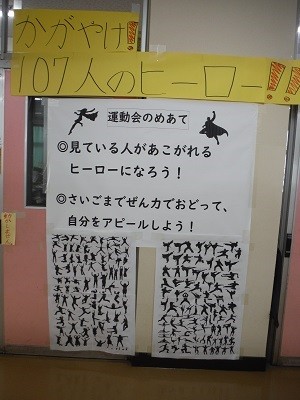 かがやけ!
107人のヒーロー!!
運動会のめあて
◎見ている人があこがれる
ヒーローになろう！
◎さいごまでぜん力でおどって、
自分をアピールしよう！